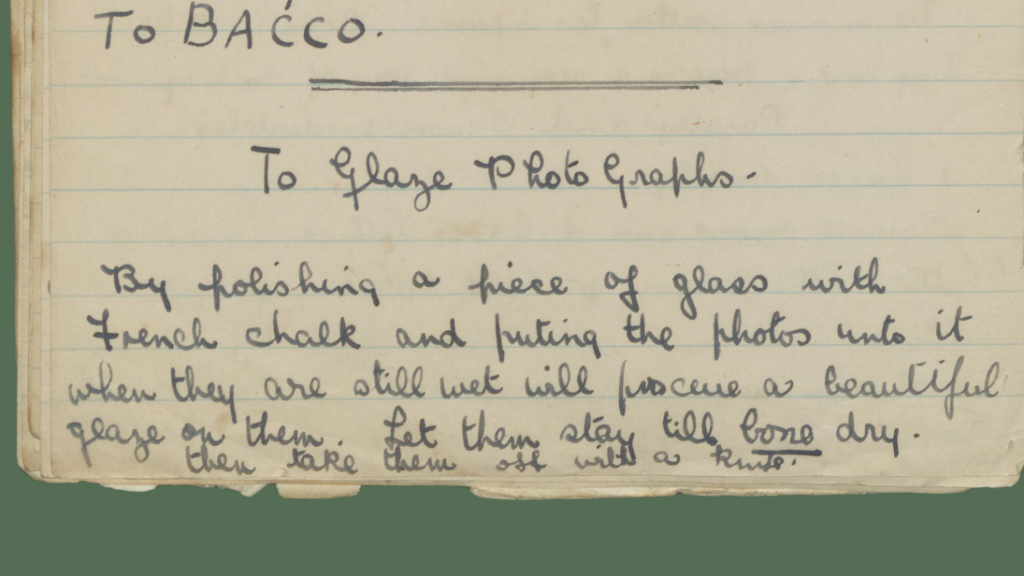 To BACCO.
To Glaze PhotoGraphs.
By polishing a piece of glass with
French chalk and puting the photos unto it
when they are still wet will procure a beautiful
glaze on them. Let them stay till bone dry.
then take them off with a knife.